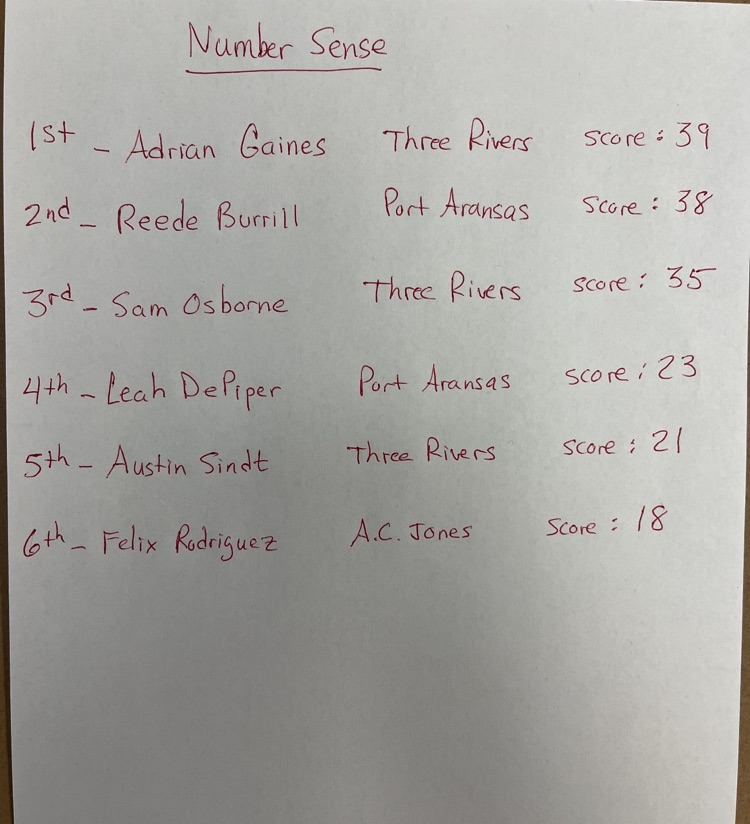 Number Sense
1st - Adrian Gaines Three Rivers score: 39
2nd - Reede Burrill Port Aransas score: 38
3rd - Sam Osborne Three Rivers score: 35
4th - Leah DePiper Port Aransas score: 23
5th - Austin Sindt Three Rivers score: 21
6th - Felix Rodriguez A.C. Jones score: 18